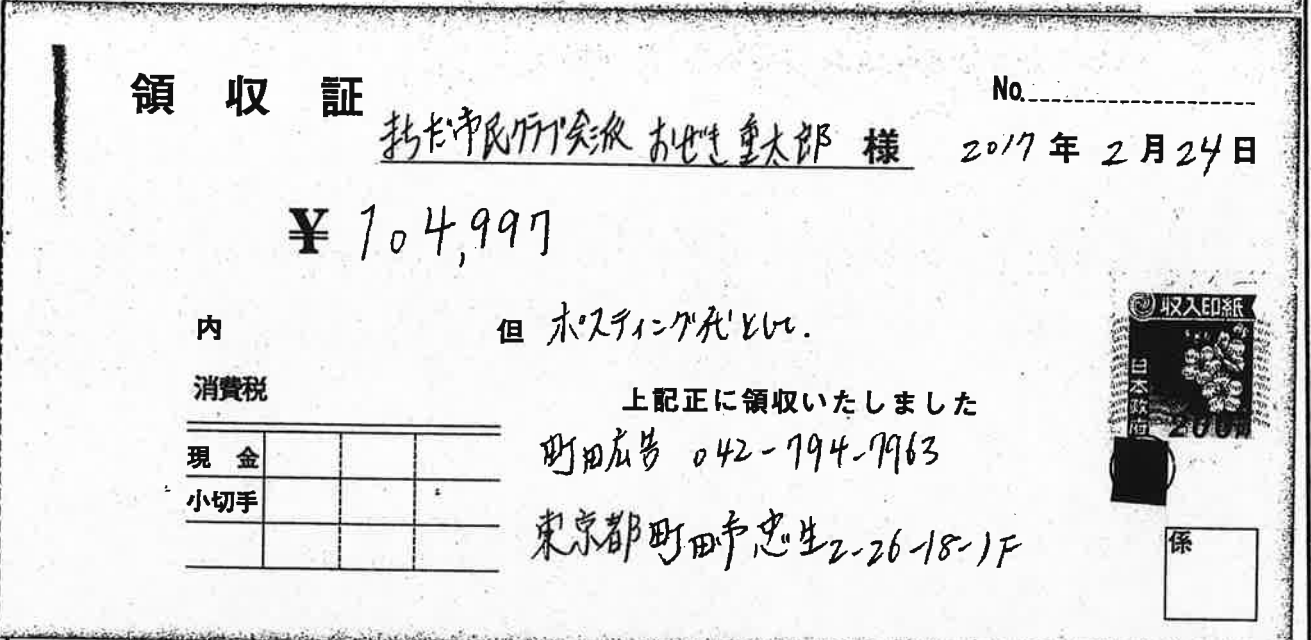 領収証
No.
まちだ市民クラブ会派 おぜき重太郎 様
2017年2月24日
¥104,997
内
但 ポスティング代として.
消費税
上記正に領収いたしました
現金
小切手
町田広告 042-794-7963
東京都町田市忠生2-26-18-1F
収入印紙
日本政府
200円
係